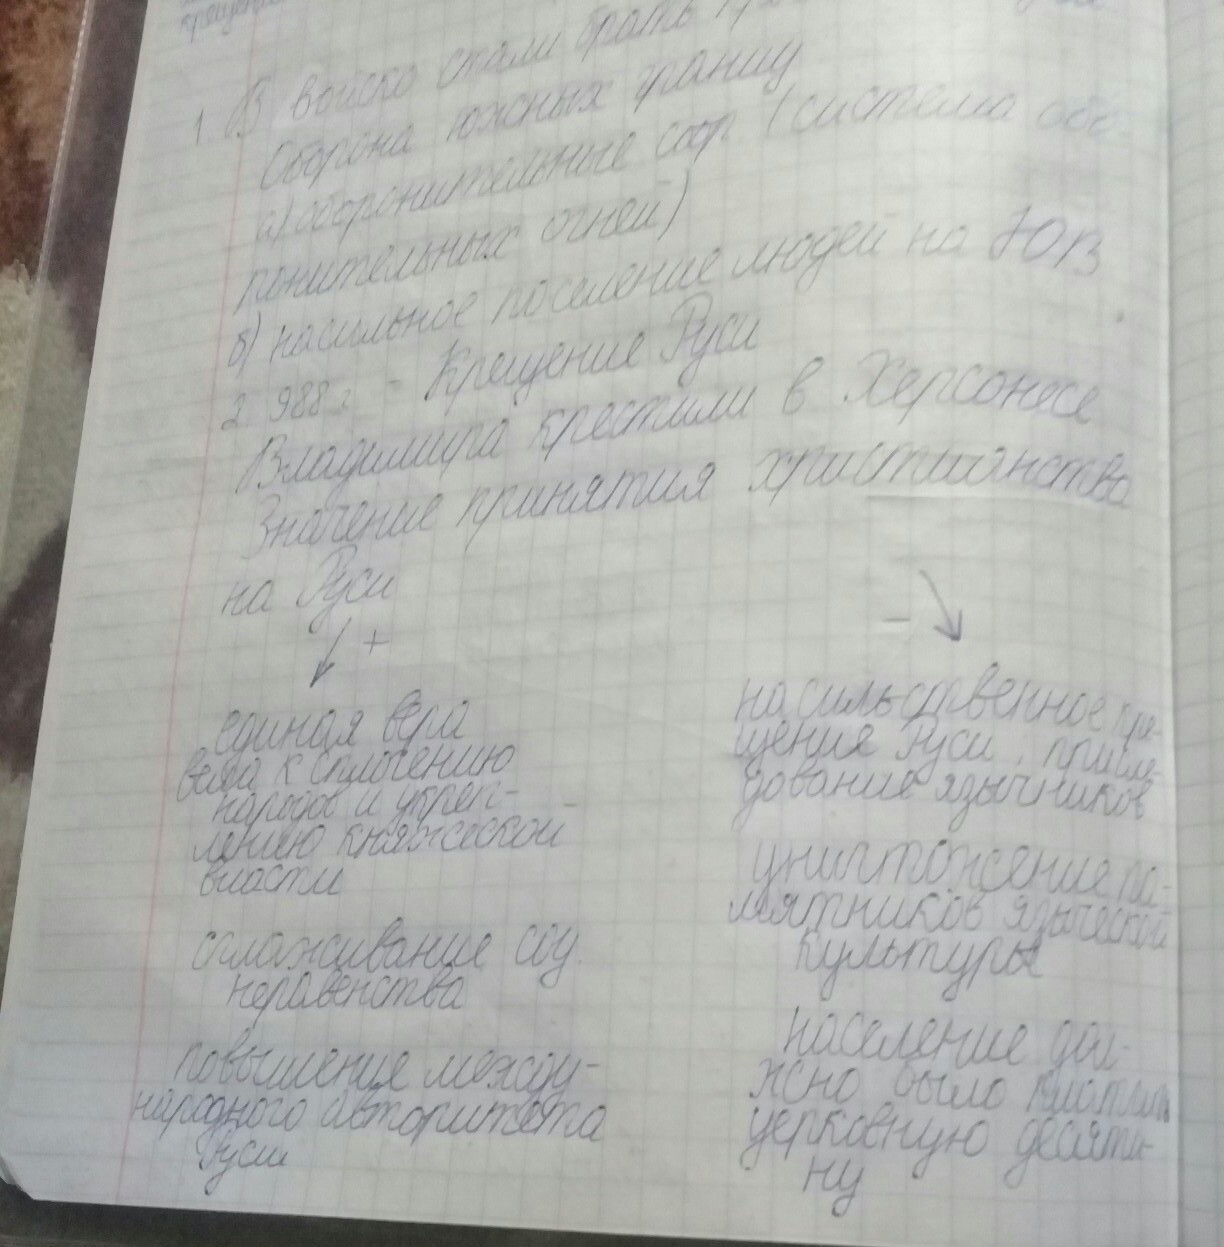 1. В войско стали брать
Оборона южных границ
а) оборонительные соор. (система обо-
ронительных огней)
б) насильное поселение людей на ЮВ
2. 988 г. - Крещение Руси
Владимира крестили в Херсонесе
Значение принятия христианства
на Руси
+ −
единая вера
вела к сплочению
народов и укреп-
лению княжеской
власти
сглаживание соц.
неравенства
повышение между-
народного авторитета
Руси
насильственное кре-
щение Руси, присле-
дование язычников
уничтожение па-
мятников языческой
культуры
население дол-
жно было платить
церковную десяти-
ну